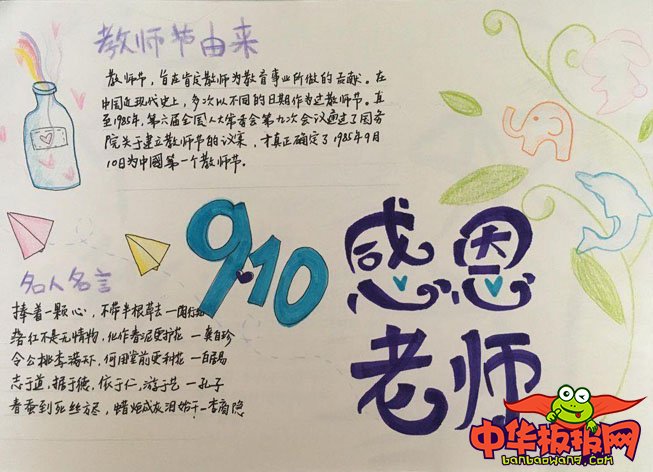 教师节由来
教师节，旨在肯定教师为教育事业所做的贡献。在
中国近现代史上，多次以不同的日期作为过教师节。直
至1985年，第六届全国人大常委会第九次会议通过了国务
院关于建立教师节的议案，才真正确定了1985年9月
10日为中國第一个教师节。
9.10
感恩
老师
名人名言
捧着一颗心，不带半根草去—陶行知
落红不是无情物，化作春泥更护花 —龚自珍
令公桃李满天下，何用堂前更种花 —白居易
志于道，据于德，依于仁，游于艺 —孔子
春蚕到死丝方尽，蜡炬成灰泪始干—李商隐
中华板报网
banbaowang.com